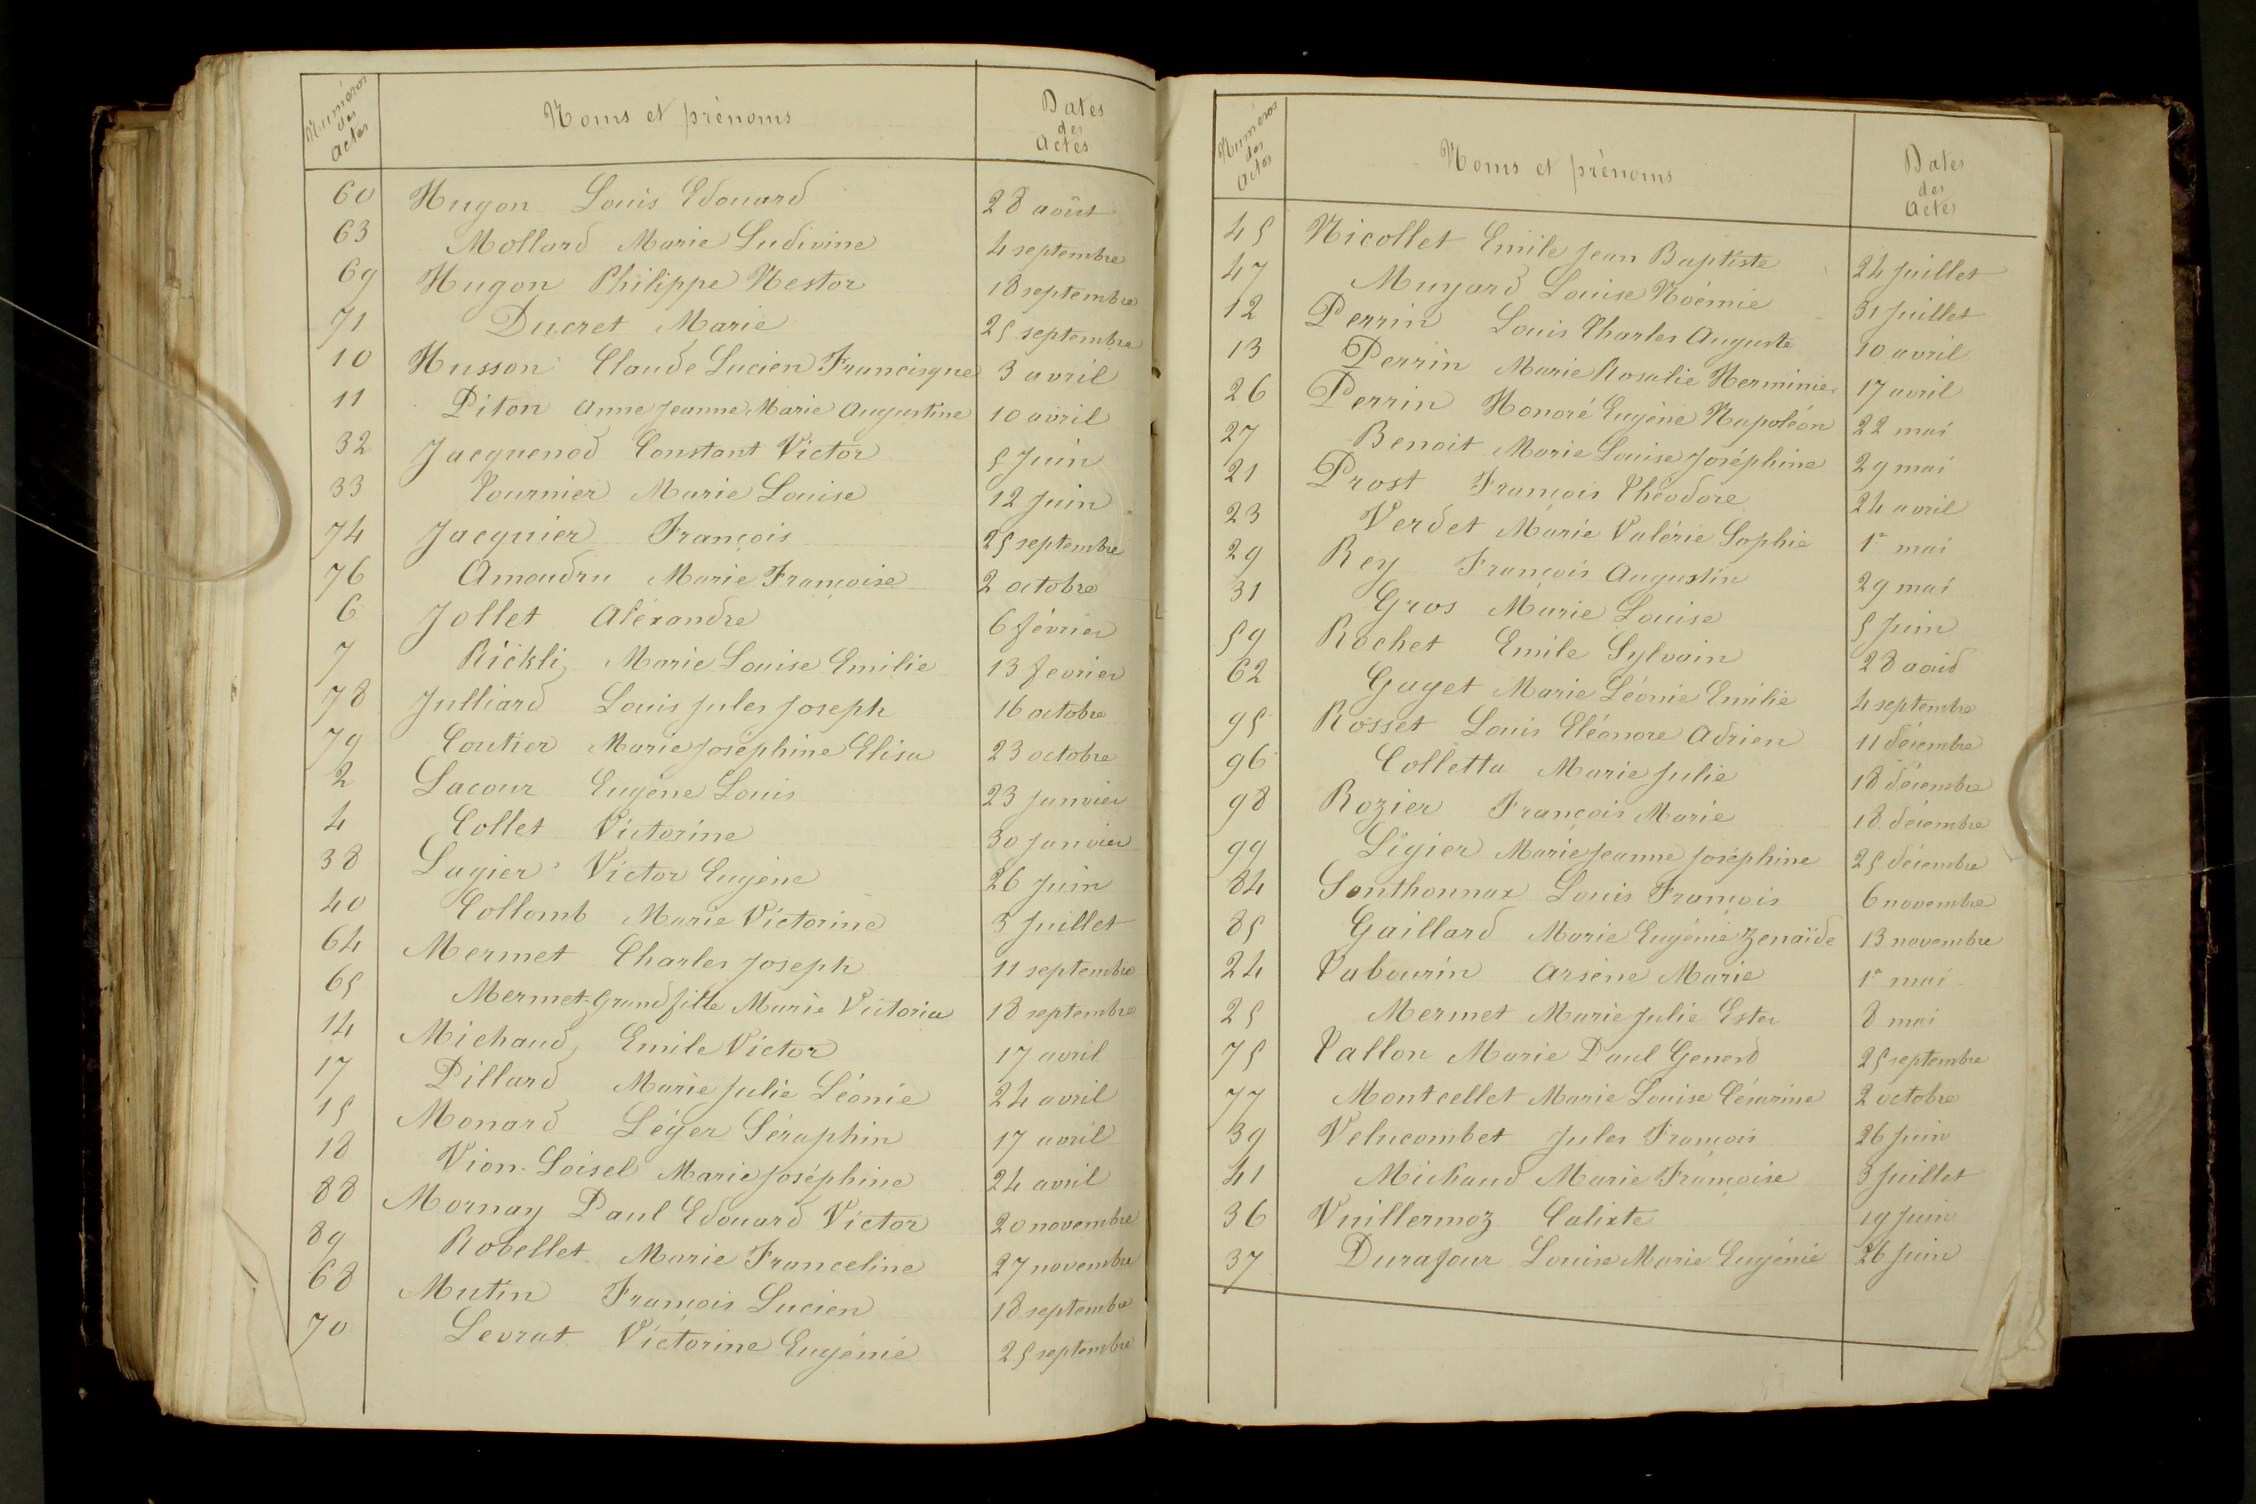 Numéros des Actes Noms et prénoms Dates des Actes
60 Hugon Louis Edouard 28 août
63 Mollard Marie Ludivine 4 septembre
69 Hugon Philippe Nestor 18 septembre
71 Ducret Marie 25 septembre
10 Husson Claude Lucien Francisque 3 avril
11 Piton Anne Jeanne Marie Augustine 10 avril
32 Jacquenod Constant Victor 5 Juin
33 Tournier Marie Louise 12 Juin
74 Jacquier François 25 septembre
76 Amoudru Marie Françoise 2 octobre
6 Jollet Aléxandre 6 février
7 Rickli Marie Louise Emilie 13 fevrier
78 Julliard Louis Jules Joseph 16 octobre
79 Coutier Marie Joséphine Elisa 23 octobre
2 Lacour Eugène Louis 23 Janvier
4 Collet Victorine 30 Janvier
38 Lugier Victor Eugène 26 Juin
40 Collomb Marie Victorine 3 Juillet
64 Mermet Charles Joseph 11 septembre
65 Mermet-Grandfille Marie Victoria 18 septembre
14 Michaud Emile Victor 17 avril
17 Pillard Marie Julie Léonie 24 avril
15 Monard Léger Séraphin 17 avril
18 Vion-Loisel Marie Joséphine 24 avril
88 Mornay Paul Edouard Victor 20 novembre
89 Robellet Marie Franceline 27 novembre
68 Mutin François Lucien 18 septembre
70 Levrat Victorine Eugénie 25 septembre
Numéros des Actes Noms et prénoms Dates des Actes
45 Nicollet Emile Jean Baptiste 24 Juillet
47 Muyard Louise Noémie 31 Juillet
12 Perrin Louis Charles Auguste 10 avril
13 Perrin Marie Rosalie Herminie 17 avril
26 Perrin Honoré Eugène Napoléon 22 mai
27 Benoit Marie Louise Joséphine 29 mai
21 Prost François Théodore 24 avril
23 Verdet Marie Valérie Sophie 1r mai
29 Rey François Augustin 29 mai
31 Gros Marie Louise 5 Juin
59 Rochet Emile Sylvain 28 août
62 Guyet Marie Léonie Emilie 4 septembre
95 Rosset Louis Eléonore Adrien 11 décembre
96 Colletta Marie Julie 18 décembre
98 Rozier François Marie 18 décembre
99 Ligier Marie Jeanne Joséphine 25 décembre
84 Sonthonnax Louis François 6 novembre
85 Gaillard Marie Eugénie Zenaïde 13 novembre
24 Tabourin Arsène Marie 1r mai
25 Mermet Marie Julie Ester 8 mai
75 Tallon Marie Paul Genend 25 septembre
77 Montcellet Marie Louise Césarine 2 octobre
39 Velucombet Jules François 26 Juin
41 Michaud Marie Françoise 3 Juillet
36 Vuillermoz Calixte 19 Juin
37 Durafour Louise Marie Eugénie 26 Juin